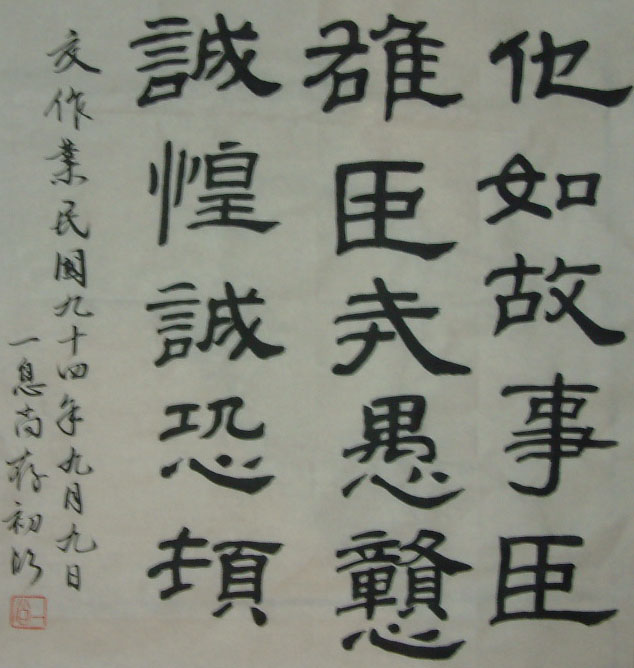 他如故事臣
雄臣戒愚戇
誠惶誠恐頓
交作業民國九十四年九月九日
一息尚存初